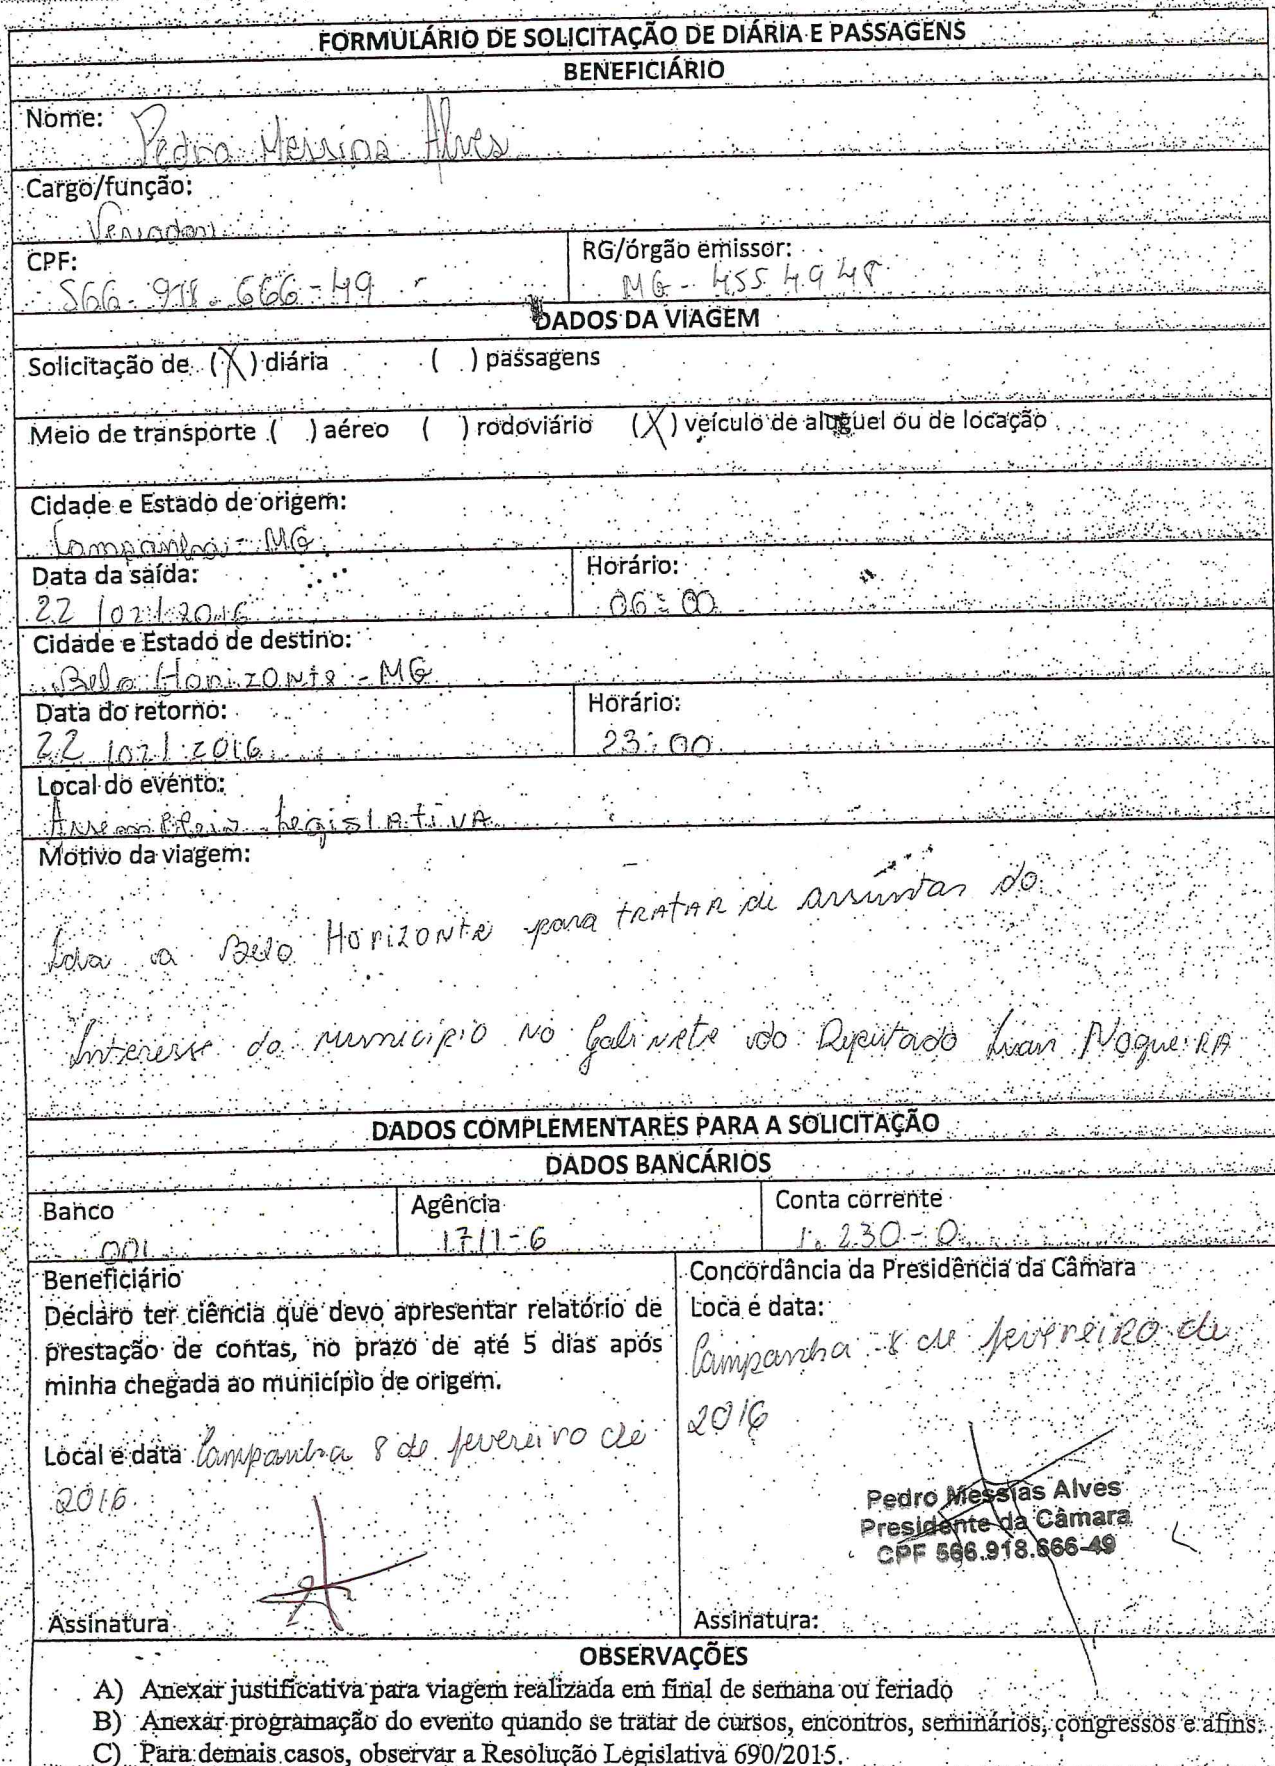 FORMULÁRIO DE SOLICITAÇÃO DE DIÁRIA E PASSAGENS
BENEFICIÁRIO
Nome:
Pedro Messias Alves
Cargo/função:
Vereador
CPF:
566-918-666-49
RG/órgão emissor:
MG-4554948
DADOS DA VIAGEM
Solicitação de (X) diária ( ) passagens
Meio de transporte ( ) aéreo ( ) rodoviário (X) veículo de aluguel ou de locação
Cidade e Estado de origem:
Campanha - MG
Data da saída:
22/02/2016
Horário:
06:00
Cidade e Estado de destino:
Belo Horizonte - MG
Data do retorno:
22/02/2016
Horário:
23:00
Local do evento:
Assembleia Legislativa
Motivo da viagem:
Ida a Belo Horizonte para tratar de assuntos do
Interesse do município no Gabinete do Deputado Nogueira
DADOS COMPLEMENTARES PARA A SOLICITAÇÃO
DADOS BANCÁRIOS
Banco
001
Agência
1711-6
Conta corrente
1.230-0
Beneficiário
Declaro ter ciência que devo apresentar relatório de
prestação de contas, no prazo de até 5 dias após
minha chegada ao município de origem.
Local e data Campanha 8 de fevereiro de
2016
Assinatura
Concordância da Presidência da Câmara
Loca e data:
Campanha 8 de fevereiro de
2016
Pedro Messias Alves
Presidente da Câmara
CPF 566.918.666-49
Assinatura:
OBSERVAÇÕES
A) Anexar justificativa para viagem realizada em final de semana ou feriado
B) Anexar programação do evento quando se tratar de cursos, encontros, seminários, congressos e afins.
C) Para demais casos, observar a Resolução Legislativa 690/2015.